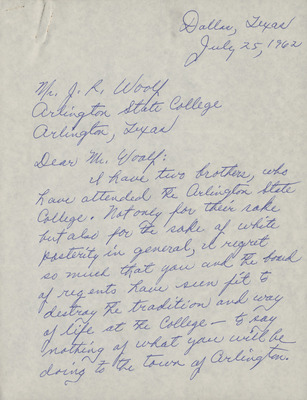 Dallas, Texas
July 25, 1962
Mr. J. R. Woolf
Arlington State College
Arlington, Texas
Dear Mr. Woolf:
I have two brothers, who
have attended the Arlington State
College. Not only for their sake
but also for the sake of white
posterity in general, I regret
so much that you and the board
of regents have seen fit to
destroy the tradition and way
of life at the College — to say
nothing of what you will be
doing to the town of Arlington.